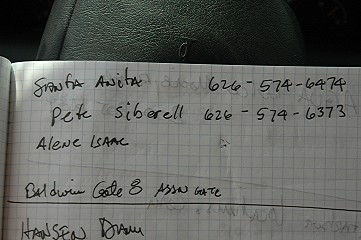 Santa Anita 626-574-6474
Pete Siberell 626-574-6373
Alene Isaac
Baldwin Gate 8 ASSN GATE
HANSEN DAM